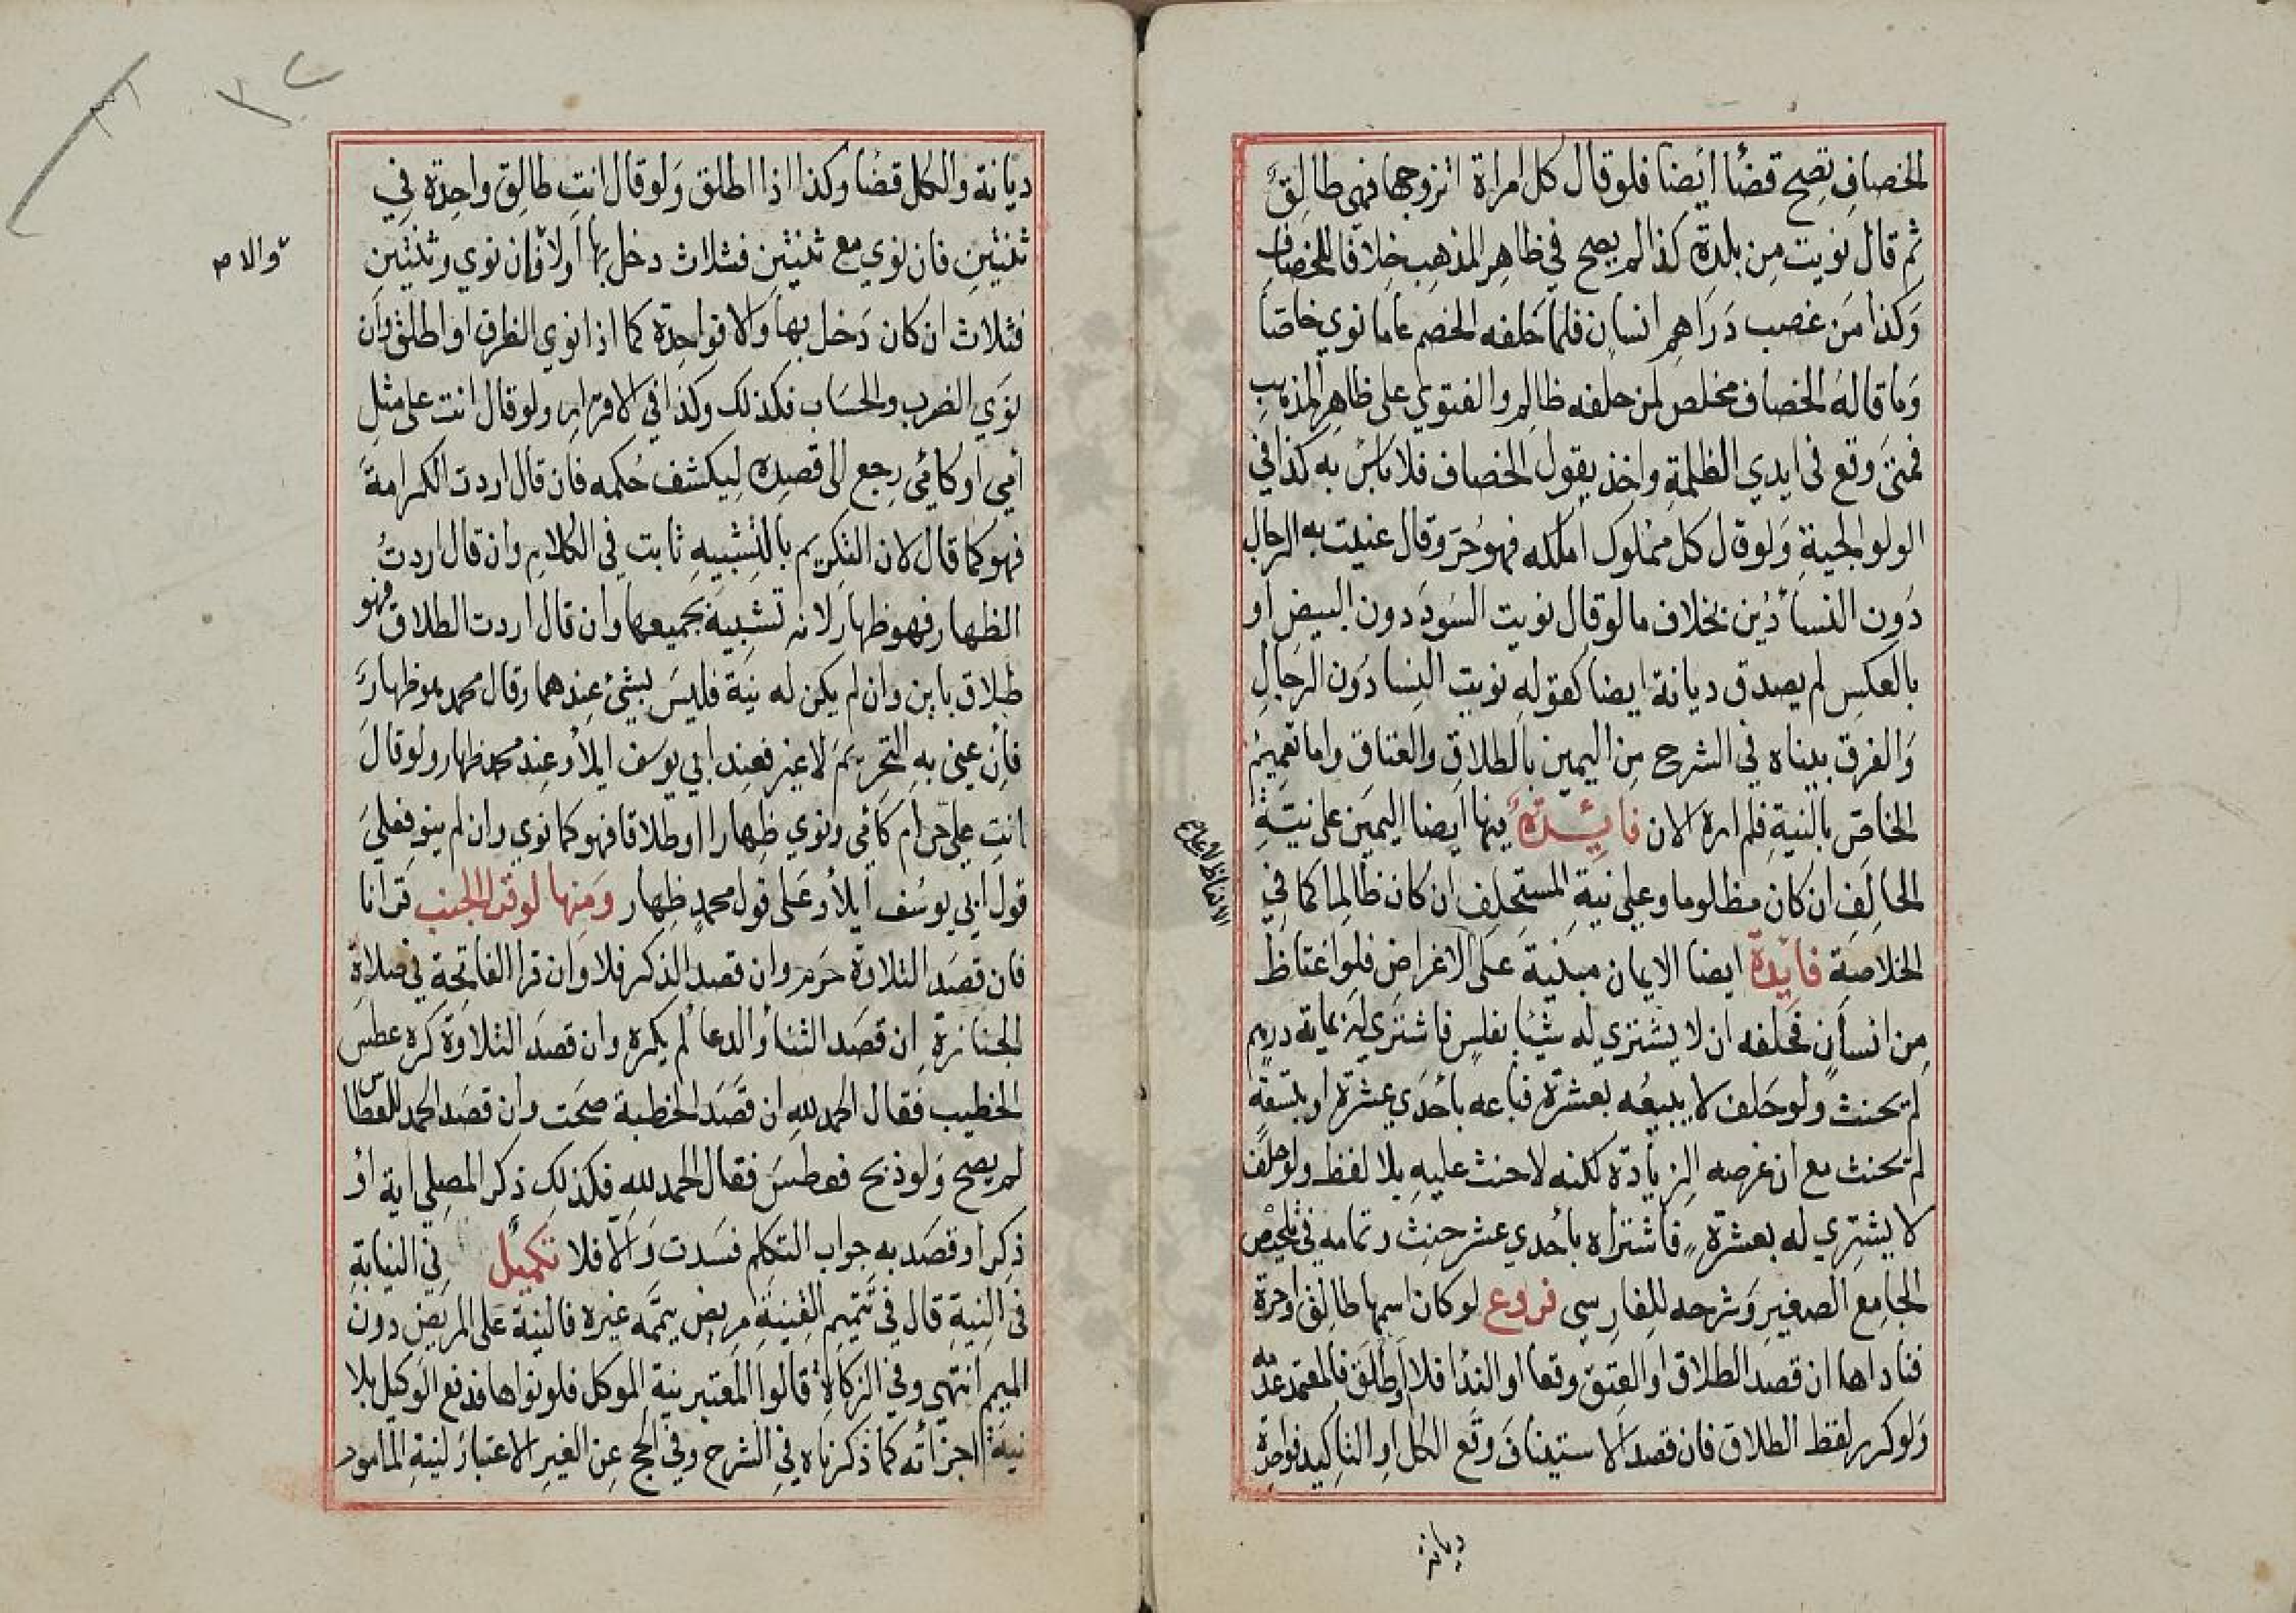 الخصاف تصح قضأ ايضا فلو قال كل امراة اتزوجها فهي طالق
ثم قال نويت من بلدة كذا لم يصح في ظاهر المذهب خلافا للخصاف
وكذا من غصب دراهم انسان فلما حلفه الخصم عاما نوي خاصا
وما قاله الخصاف مخلص لمن حلفه ظالم والفتوي علي ظاهر المذهب
فمتي وقع في ايدي الظلمة واخذ بقول الخصاف فلا باس به كذا في
الولوالجية ولو قال كل مملوك املكه فهو حر وقال عنيت به الرجال
دون النسأ دين بخلاف ما لو قال نويت السود دون البيض او
بالعكس لم يصدق ديانة ايضا كقوله نويت النسا دون الرجال
والفرق بيناه في الشرح من اليمين بالطلاق والعتاق واما تعميم
الخاص بالنية فلم اره الان فائدة فيها ايضا اليمين علي نية
الحالف ان كان مظلوما وعلي نية المستحلف ان كان ظالما كما في
الخلاصة فايدة ايضا الايمان مبنية علي الاغراض فلو اغتاظ
الالفاظ لا علي
من انسان فحلفه ان لا يشتري له شيئا بفلس فاشتري له بماية درهم
لم يحنث ولو حلف لا يبيعه بعشرة فباعه باحدي عشرة او بتسعة
لم يحنث مع ان غرضه الزيادة لكنه لا حنث عليه بلا لفظ ولو حلف
لا يشتري له بعشرة فاشتراه باحدي عشر حنث وتمامه في تلخيص
الجامع الصغير وشرحه للفارسي فروع لو كان اسمها طالق او حرة
فناداها ان قصد الطلاق او العتق وقعا او الندا فلا او اطلق فالمعتمد عدمه
ولو كرر لفظ الطلاق فان قصد الاستيناف وقع الكل او التاكيد فواحدة
ديانة
ديانة والكل قضا وكذا اذا اطلق ولو قال انت طالق واحدة في
ثنتين فان نوي مع ثنتين فثلاث دخل بها اولا وان نوي وثنتين
والا م
فثلاث ان كان دخل بها والا فواحدة كما اذا نوي الظرف او اطلق وان
نوي الضرب والحساب فكذلك وكذا في الاقرار ولو قال انت علي مثل
امي او كامي رجع الي قصده ليكشف حكمه فان قال اردت الكرامة
فهو كما قال لان التكريم بالتشبيه ثابت في الكلام وان قال اردت
الظهار فهو ظهار لانه تشبيه بجميعها وان قال اردت الطلاق فهو
طلاق باين وان لم يكن له نية فليس بشئ عندهما وقال محمد هو ظهار
فان عني به التحريم لا غير فعند ابي يوسف ايلأ وعند محمد ظهار ولو قال
انت علي حرام كامي ونوي ظهارا او طلاقا فهو كما نوي وان لم ينو فعلي
قول ابي يوسف ايلأ وعلي قول محمد ظهار ومنها لو قرا الجنب قرانا
فان قصد التلاوة حرم وان قصد الذكر فلا وان قرا الفاتحة في صلاة
الجنازة ان قصد الثنأ والدعا لم يكره وان قصد التلاوة كره عطس
الخطيب فقال الحمد لله ان قصد الخطبة صحت وان قصد الحمد للعطاس
لم يصح ولو ذبح فعطس فقال الحمد لله فكذلك ذكر المصلي اية او
ذكرا وقصد به جواب المتكلم فسدت والا فلا تكميل في النيابة
في النية قال في تتميم القنية مريض يممه غيره فالنية علي المريض دون
الميمم انتهي وفي الزكاة قالوا المعتبر نية الموكل فلو نواها فدفع الوكيل بلا
نية اجزأته كما ذكرناه في الشرح وفي الحج عن الغير الاعتبار لنية المامور